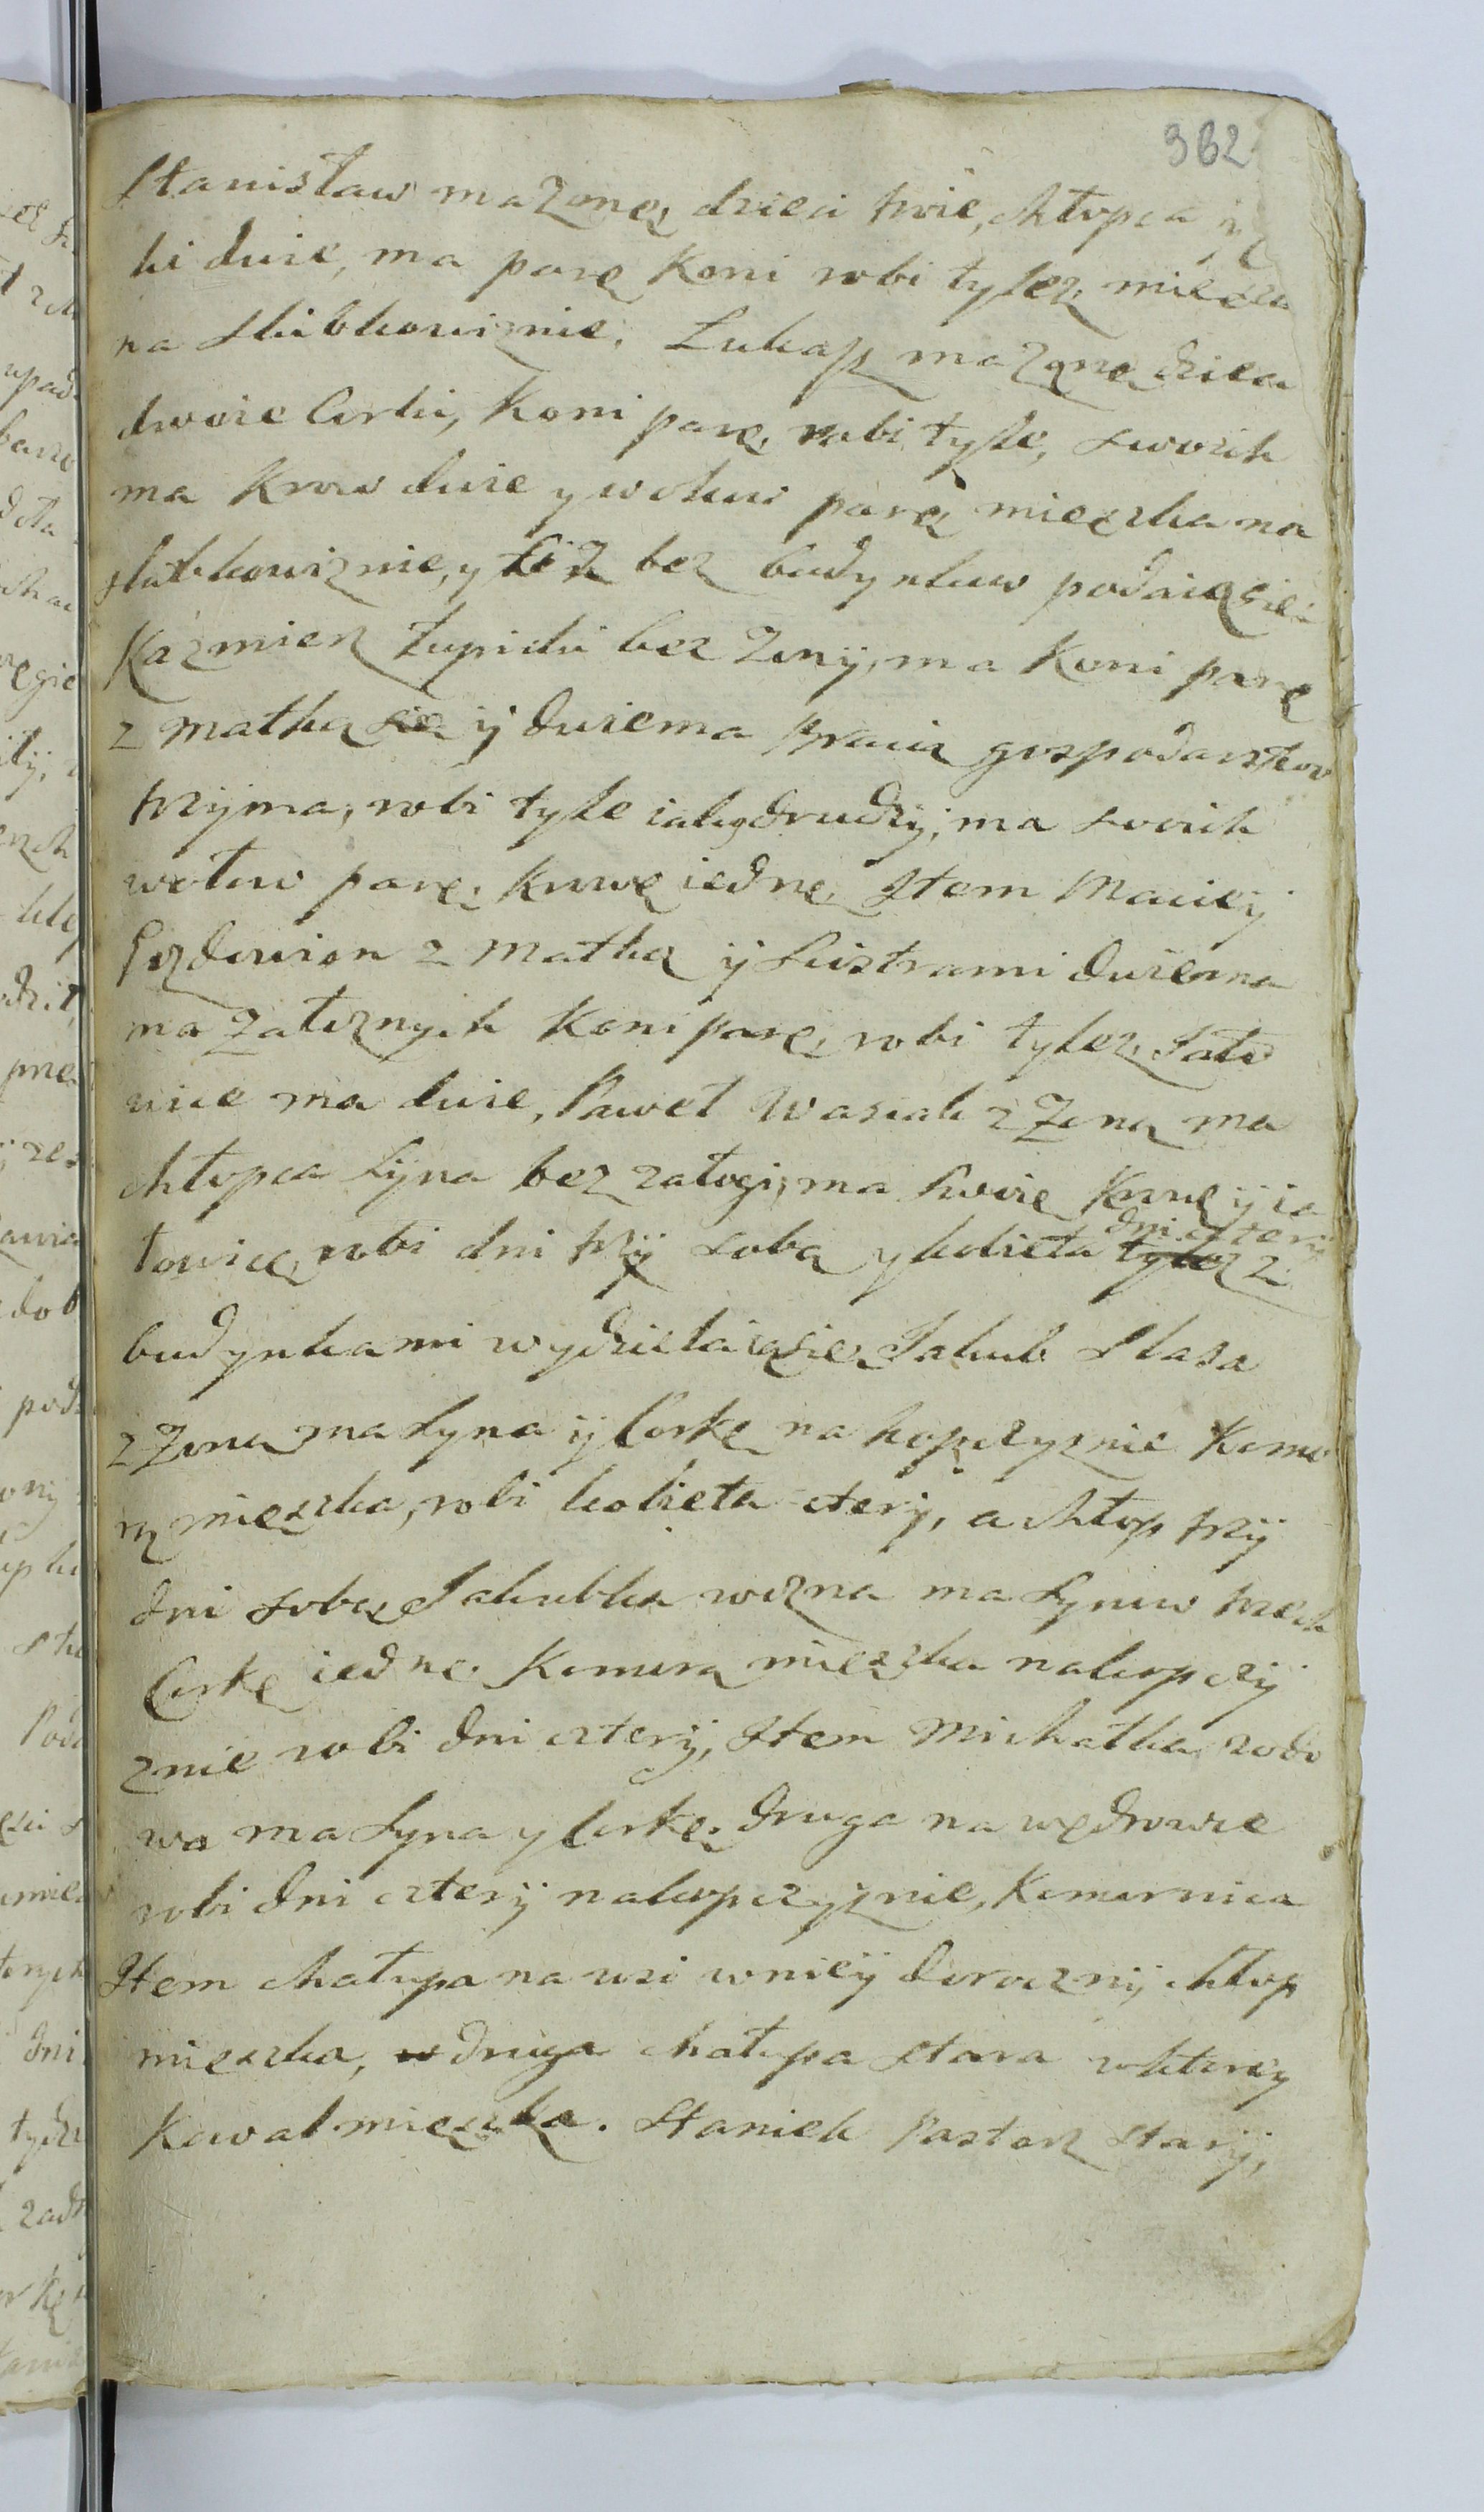 362
Stanisław ma zonę, dzieci troie, chłopca y
ki dwie, ma parę Koni robi tylez, mieszka
na Slubkowiznie. Łukasz ma zonę dzieci
dwoie Corki, Koni parę, robi tyle, swoich
ma Krow dwie y wołuw parę mieszka na
slubkowiznie, y też bez budynkuw podaie się.
Kazmierz Łupicki bez zony, ma Koni parę
z matką sie ÿ dwiema Bracią gospodarstwo
trzyma, robi tyle iako drudzÿ, ma swoich
wołuw parę, Krowę iednę, Item Macieÿ
Gozdowion z Matką ÿ Siostrami dwiema
ma załoznych Koni parę, robi tylez, Jało
wice ma dwie, Paweł Wasiak z Zoną ma
chłopca Syna bez załogi, ma Swoię Krowę ÿ ia
łowicę, robi dni trzÿ sobą y kobieta tylez z
dni cterÿ
budynkami wydzielaią się, Jakub Slaza
z Zoną ma Syna ÿ Corkę na kopczyznie Komo
rą mieszka, robi kobieta cterÿ, a chłop trzÿ
dni sobą, Jakubka wozna ma Synuw trzech
Corkę iednę. Komorą mieszka na kopczÿ
znie robi dni czterÿ, Item Michałka wdo
wa ma Syna y Corkę. druga na wędrowce
robi dni czterÿ na kopczyznie, Komornica
Item chałupa na wsi w nieÿ dorocznÿ chłop
mieszka, w druga chałupa stara w ktorey
Kowal mieszka. Staniek Pastorz starÿ,